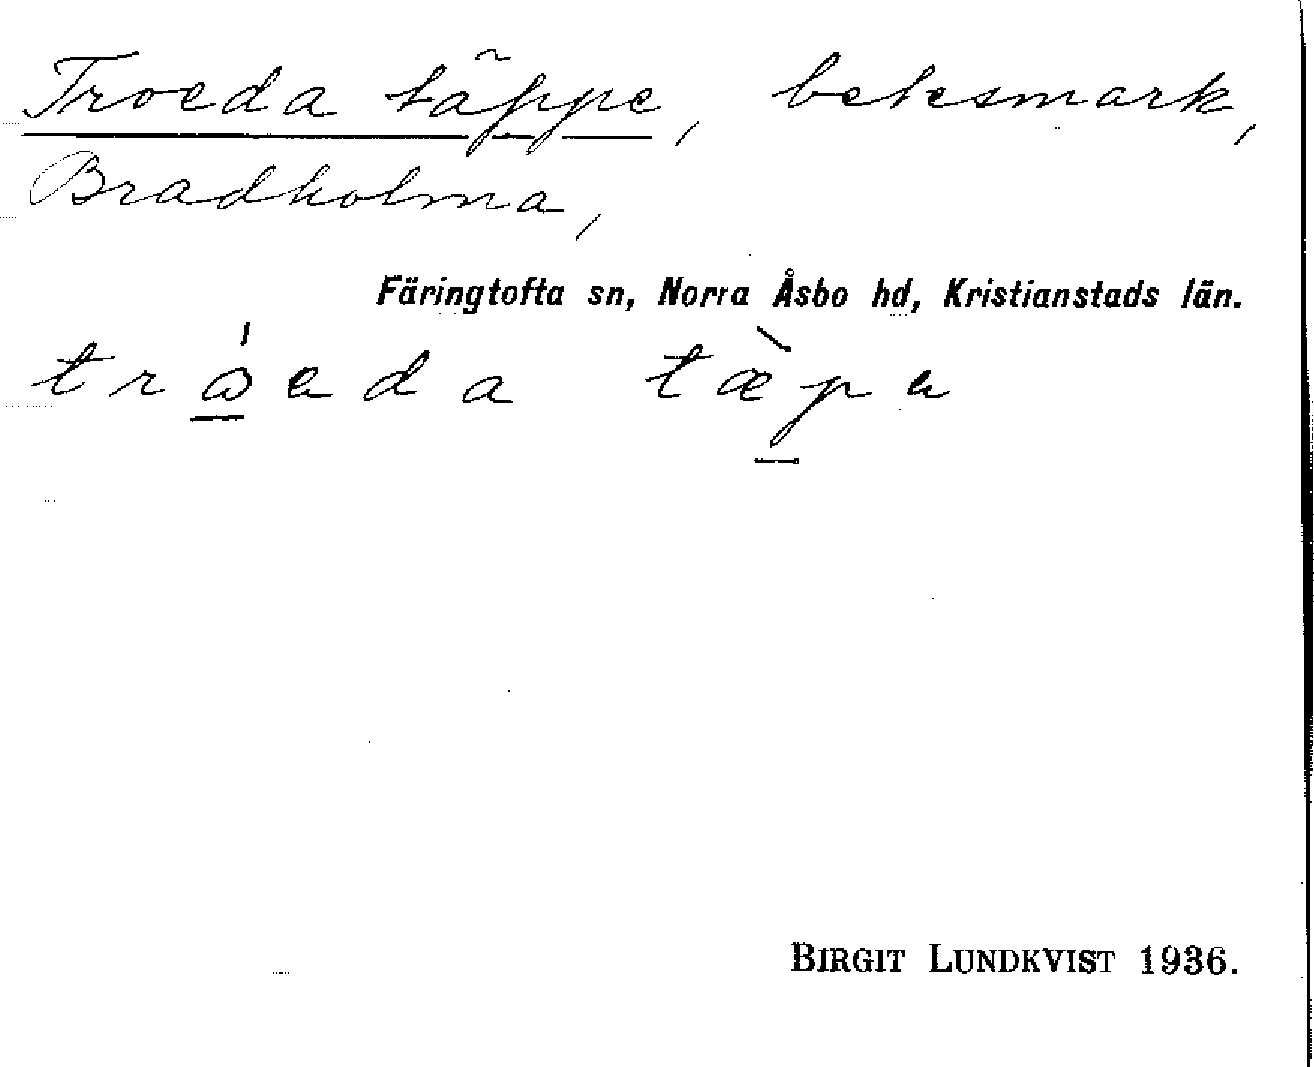 Troeda täppe, betesmark,
Bradholma,
Färingtofta sn, Norra Åsbo hd, Kristianstads län.
BIRGIT LUNDKVIST 1936.